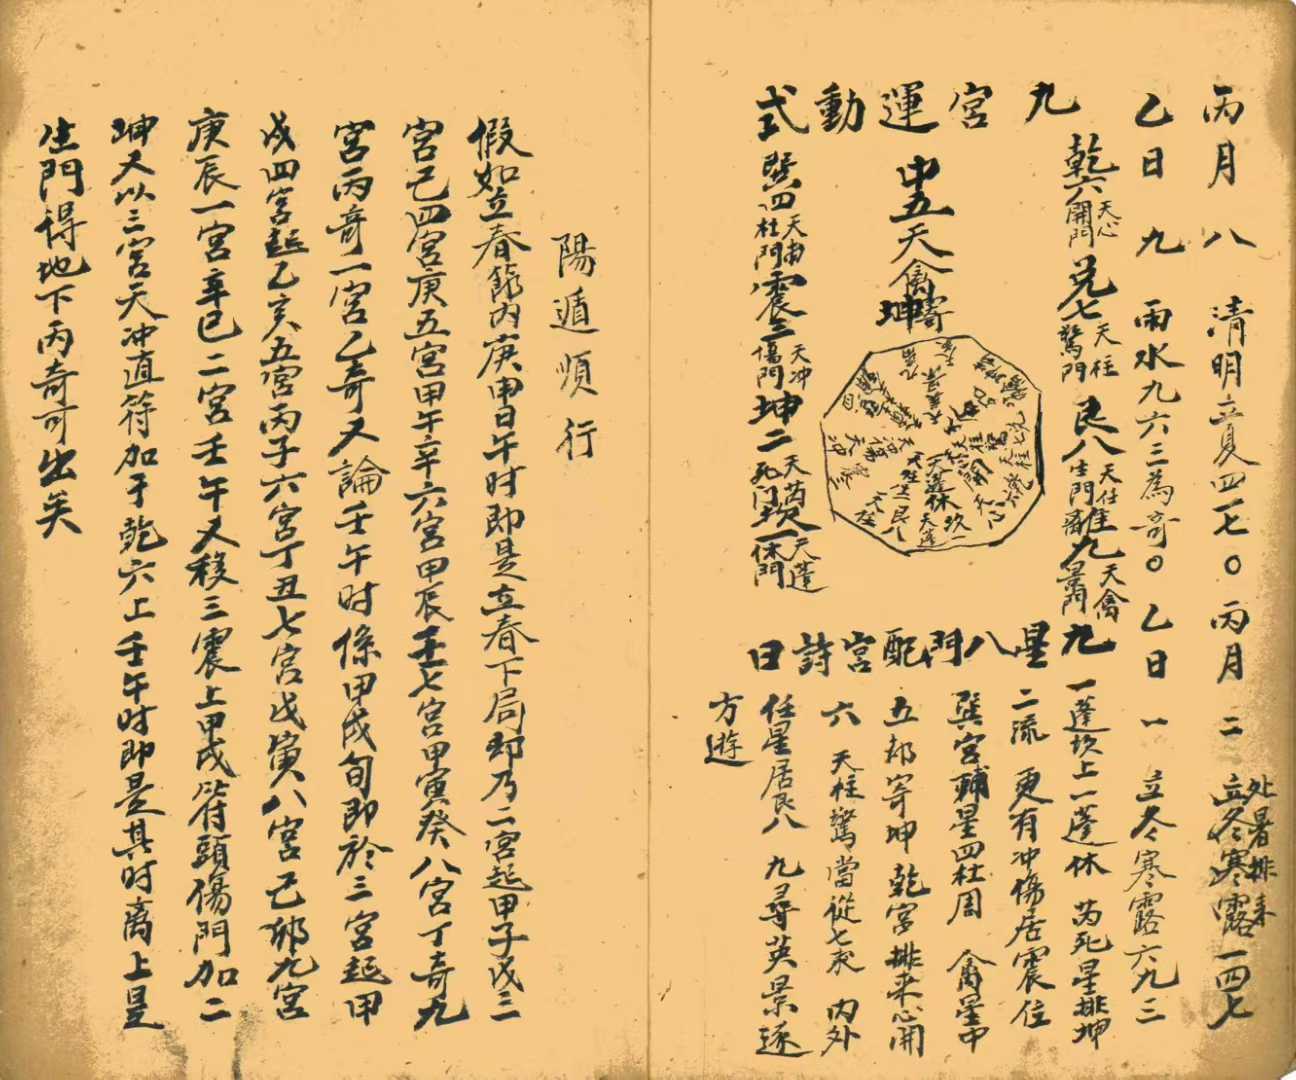 丙月八 清明立夏四一七〇丙月二 立冬寒露一四七
处暑排来
乙日九 雨水九六三為奇〇乙日一 立冬寒露六九三
九宮運動式
乾六 天心 開門 兌七 天柱 驚門 艮八 天任 生門 離九 天禽 景門
中五天禽寄坤
巽四 天甫 杜門 震三 天冲 傷門 坤二 天芮 死門 坎一 天蓬 休門
九星八門配宮詩曰
一蓬坎上一蓬休 芮死星排坤
二流 更有冲傷居震位
巽宮輔星四杜周 禽星中
五却寄坤 乾宮排来心開
六 天柱驚當從七兌 内外
任星居艮八 九尋英景逐
方遊
陽遁順行
假如立春節内庚申日午时即是立春下局却乃二宮起甲子戊三
宮己四宮庚五宮甲午辛六宮甲辰壬七宮甲寅癸八宮丁奇九
宮丙奇一宮乙奇又論壬午时係甲戌旬即於三宮起甲
戌四宮起乙亥五宮丙子六宮丁丑七宮戊寅八宮己卯九宮
庚辰一宮辛巳二宮壬午又移三震上甲戌符頭傷門加二
坤又以三宮天冲直符加于乾六上壬午时即是其时离上是
生門得地下丙奇可出矣